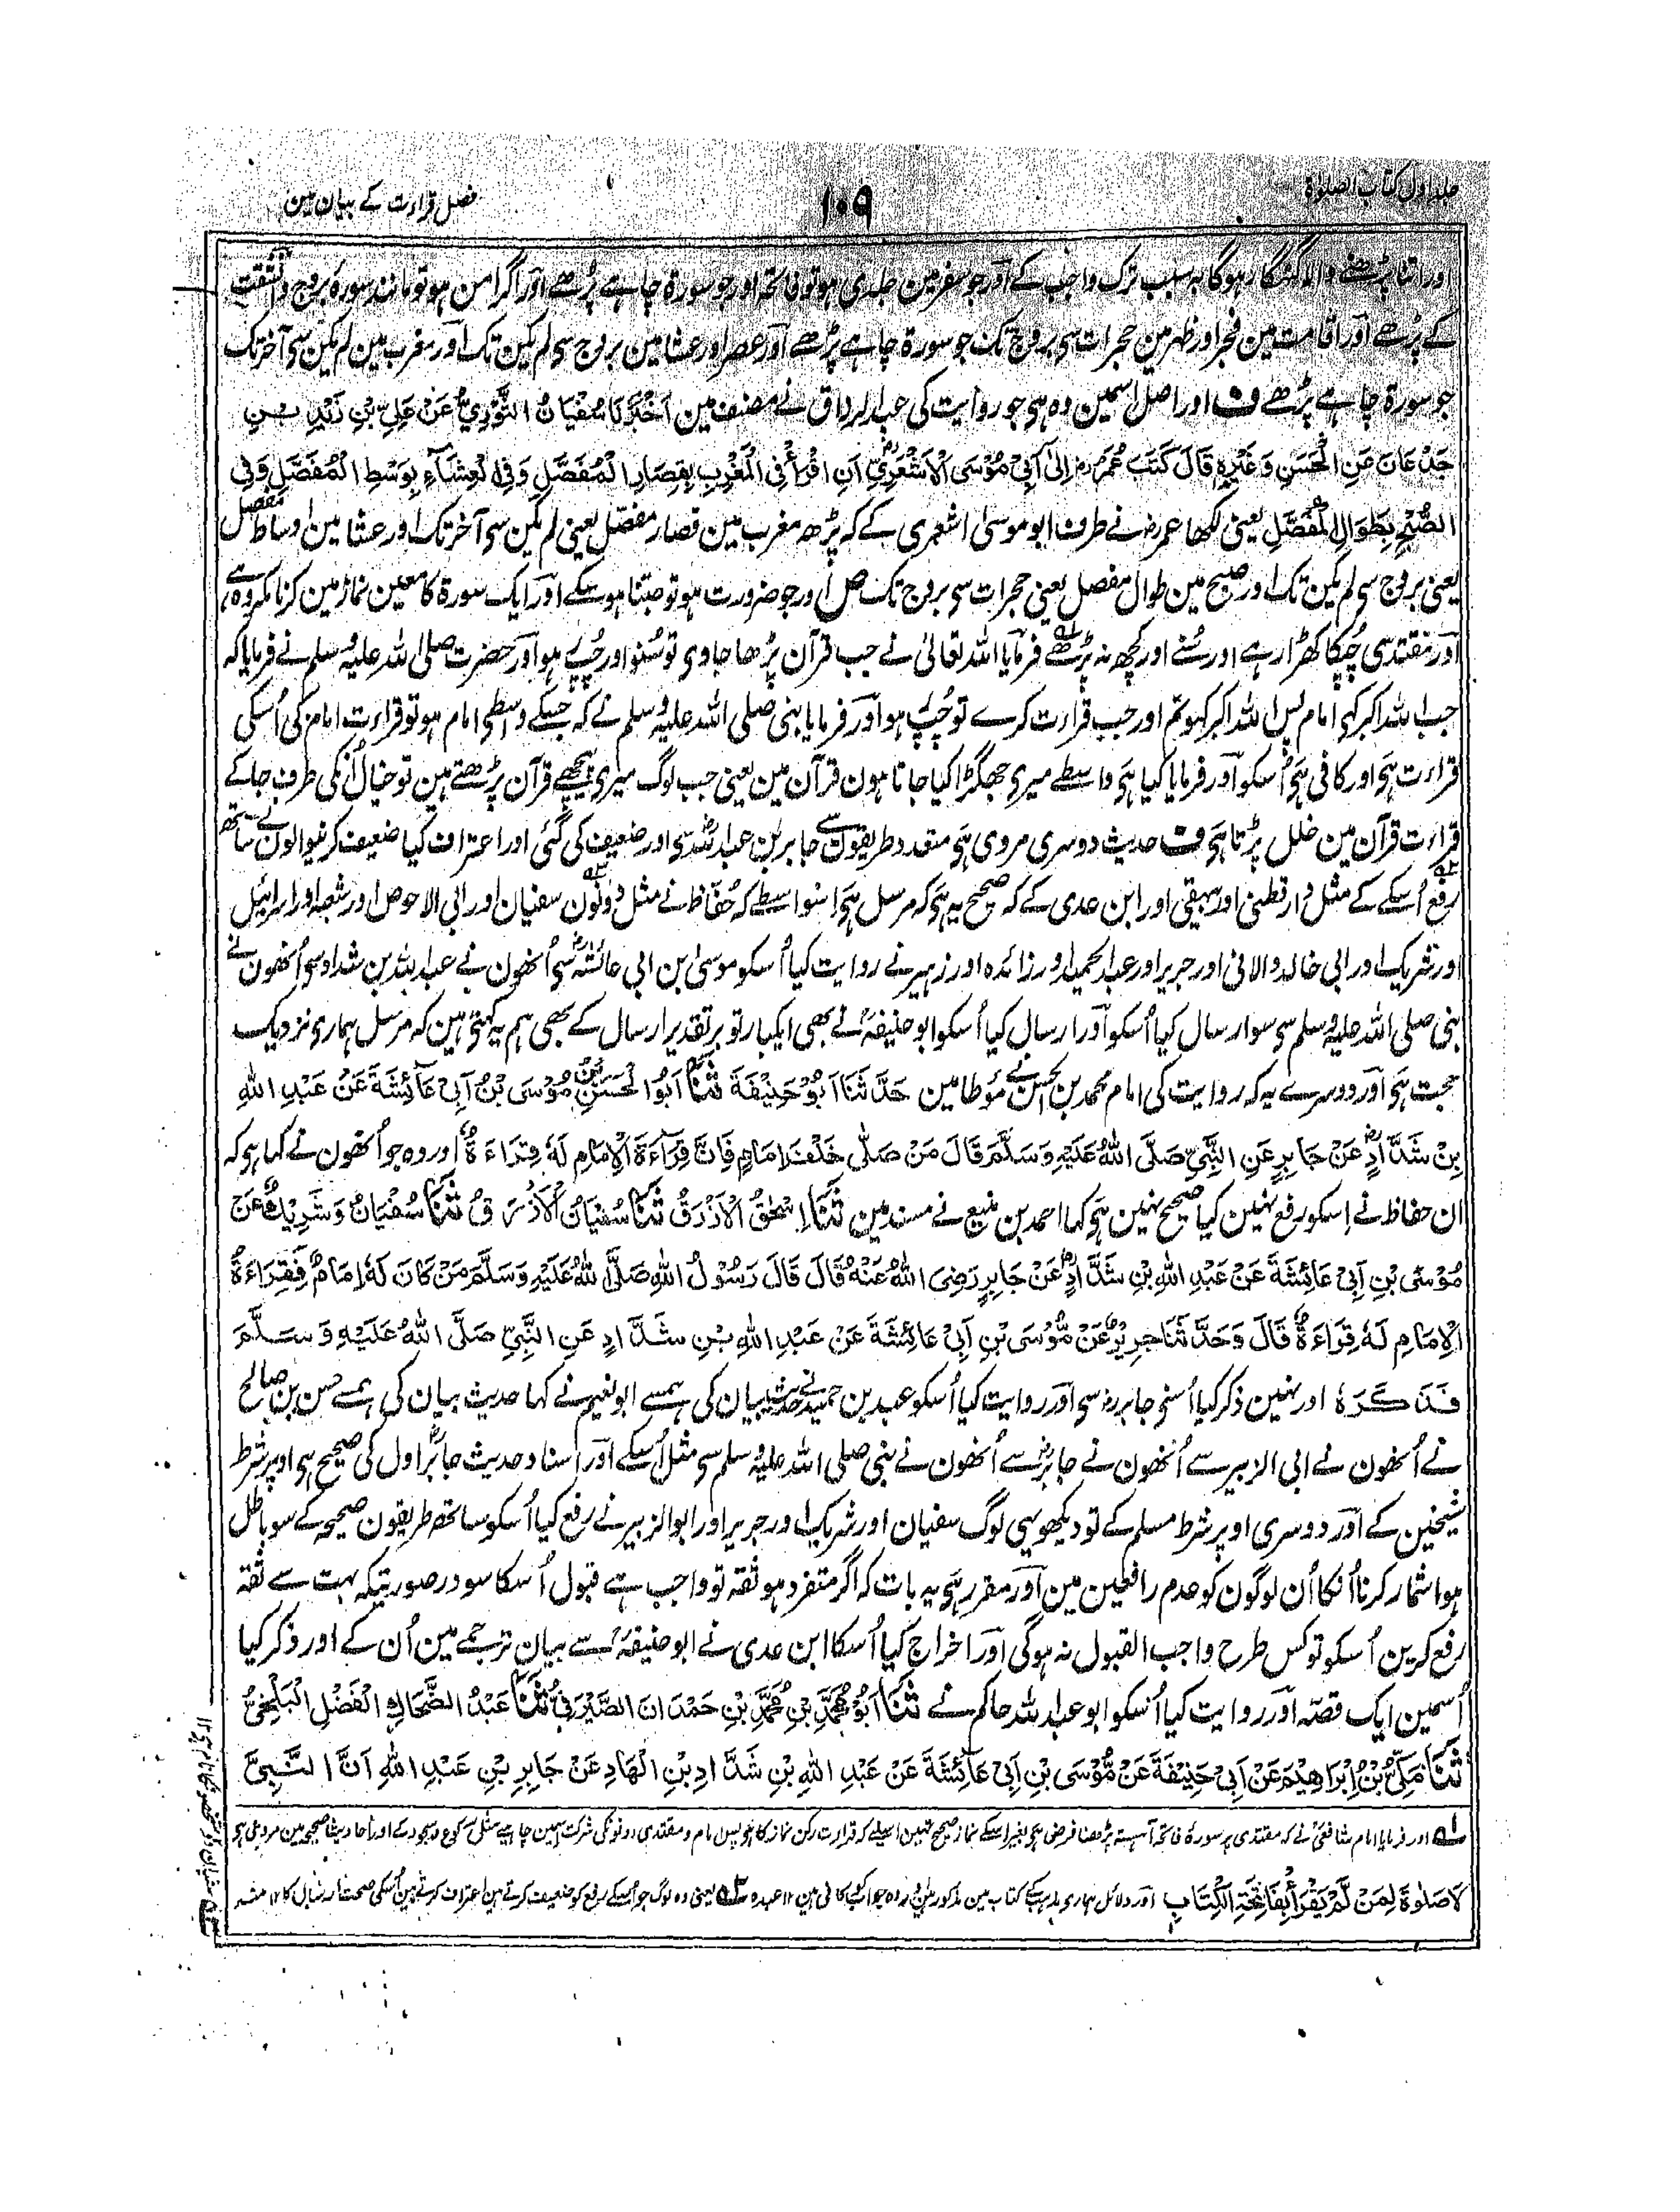 جلد اول کتاب الصلوٰۃ
۱۰۹
فصل قرارت کے بیان مین
اور اتنا پڑھنے والا گنہگار ہوگا بہ سبب ترک واجب کے اور جو سفر مین جلدی ہو تو فاتحہ اور جو سورۃ چاہے پڑھے اور اگر امن ہو تو مانند سورۂ بروج وانشقت
کے پڑھے اور اقامت مین فجر اور ظہر مین حجرات سی بروج تک جو سورۃ چاہے پڑھے اور عصر اور عشا مین بروج سی لم یکن تک اور مغرب مین لم یکن سی آخر تک
جو سورۃ چاہے پڑھے ف اور اصل اسمین وہ ہی جو روایت کی عبد الرزاق نے مصنف مین اَخْبَرَنَا سُفْیَانُ الثَّوْرِیُّ عَنْ عَلِیِّ بْنِ زَیْدِ بْنِ
جَدْعَانَ عَنِ الْحَسَنِ وَغَیْرِهٖ قَالَ کَتَبَ عُمَرُ رض اِلیٰ اَبِیْ مُوْسَی الْاَشْعَرِیِّ اَنِ اقْرَأْ فِی الْمَغْرِبِ بِقِصَارِ الْمُفَصَّلِ وَفِی الْعِشَآءِ بِوَسْطِ الْمُفَصَّلِ وَفِی
الصُّبْحِ بِطِوَالِ الْمُفَصَّلِ یعنی لکھا عمر رض نے طرف ابو موسیٰ اشعری کے کہ پڑھ مغرب مین قصار مفصل یعنی لم یکن سی آخر تک اور عشا مین اوساط مفصل
یعنی بروج سی لم یکن تک اور صبح مین طوال مفصل یعنی حجرات سی بروج تک ص اور جو ضرورت ہو تو جتنا ہو سکے اور ایک سورۃ کا معین نماز مین کرنا مکروہ ہے،
اور مقتدی چپکا کھڑا رہے اور سُنے اور کچھ نہ پڑھے فرمایا اللہ تعالیٰ نے جب قرآن پڑھا جاوی تو سُنو اور چُپ ہو اور حضرت صلی اللہ علیہ وسلم نے فرمایا کہ
جب اللہ اکبر کہی امام پس اللہ اکبر کہو تم اور جب قرارت کرے تو چُپ ہو اور فرمایا نبی صلی اللہ علیہ وسلم نے کہ جسکے واسطی امام ہو تو قرارت امام کی اُسکی
قرارت ہی اور کافی ہی اُسکو اور فرمایا کیا ہی واسطے میری جھگڑا کیا جاتا ہون قرآن مین یعنی جب لوگ میری پیچھے قرآن پڑھتے ہین تو خیال اُنکی طرف جا کے
قرارت قرآن مین خلل پڑتا ہی ف حدیث دوسری مروی ہی متعدد طریقون سے جابر بن عبد اللہ سی اور ضعیف کی گئی اور اعتراف کیا ضعیف کرنیوالون نے ساتھ
رفع اُسکے کے مثل دارقطنی اور بیہقی اور ابن عدی کے کہ صحیح یہ ہی کہ مرسل ہی اسواسطے کہ حُفّاظ نے مثل دونون سفیان اور ابی الاحوص اور شعبہ اور اسرائیل
اور شریک اور ابی خالد دالانی اور جریر اور عبد الحمید اور زائدہ اور زہیر نے روایت کیا اُسکو موسیٰ بن ابی عائشہ سی اُنھون نے عبد اللہ بن شداد سی اُنھون نے
نبی صلی اللہ علیہ وسلم سی سو ارسال کیا اُسکو اور ارسال کیا اُسکو ابو حنیفہ نے بھی ایکبار تو بر تقدیر ارسال کے بھی ہم یہ کہتے ہین کہ مرسل ہماری نزدیک
حجت ہی اور دوسرے یہ کہ روایت کی امام محمد بن الحسن نے مؤطا مین حَدَّثَنَا اَبُوْ حَنِیْفَةَ ثَنَا اَبُو الْحَسَنِ مُوْسَی بْنُ اَبِیْ عَآئِشَةَ عَنْ عَبْدِ اللهِ
بْنِ شَدَّادٍ عَنْ جَابِرٍ عَنِ النَّبِیِّ صَلَّی اللهُ عَلَیْهِ وَسَلَّمَ قَالَ مَنْ صَلّٰی خَلْفَ اِمَامٍ فَاِنَّ قِرَآءَةَ الْاِمَامِ لَهٗ قِرَاءَةٌ اور وہ جو اُنھون نے کہا ہی کہ
ان حفاظ نے اسکو رفع نہین کیا صحیح نہین ہی کہا احمد بن منیع نے مسند مین ثَنَا اِسْحٰقُ الْاَزْرَقُ ثَنَا سُفْیَانُ الْاَزْرَقُ ثَنَا سُفْیَانُ وَشَرِیْكٌ عَنْ
مُوْسَی بْنِ اَبِیْ عَائِشَةَ عَنْ عَبْدِ اللهِ بْنِ شَدَّادٍ عَنْ جَابِرٍ رَضِیَ اللهُ عَنْهُ قَالَ قَالَ رَسُوْلُ اللهِ صَلَّی اللهُ عَلَیْهِ وَسَلَّمَ مَنْ کَانَ لَهٗ اِمَامٌ فَقِرَاءَةُ
الْاِمَامِ لَهٗ قِرَاءَةٌ قَالَ وَحَدَّثَنَا جَرِیْرٌ عَنْ مُّوْسَی بْنِ اَبِیْ عَائِشَةَ عَنْ عَبْدِ اللهِ بْنِ شَدَّادٍ عَنِ النَّبِیِّ صَلَّی اللهُ عَلَیْهِ وَسَلَّمَ
فَذَکَرَهٗ اور نہین ذکر کیا اُسنے جابر رض سی اور روایت کیا اُسکو عبد بن حمید نے حدیث بیان کی ہمسے ابو نعیم نے کہا حدیث بیان کی ہمسے حسن بن صالح
نے اُنھون نے ابی الزبیر سے اُنھون نے جابر سے اُنھون نے نبی صلی اللہ علیہ وسلم سی مثل اُسکے اور اسناد حدیث جابر اول کی صحیح ہی اوپر شرط
شیخین کے اور دوسری اوپر شرط مسلم کے تو دیکھو یہی لوگ سفیان اور شریک اور جریر اور ابو الزبیر نے رفع کیا اُسکو ساتھ طریقون صحیحہ کے سو باطل
ہوا شمار کرنا اُنکا اُن لوگون کو عدم رافعین مین اور مقرر ہی یہ بات کہ اگر متفرد ہو ثقہ تو واجب ہے قبول اُسکا سو در صورتیکہ بہت سے ثقہ
رفع کرین اُسکو تو کس طرح واجب القبول نہ ہوگی اور اخراج کیا اُسکا ابن عدی نے ابو حنیفہ سے بیان ترجمے مین اُن کے اور ذکر کیا
اُسمین ایک قصّہ اور روایت کیا اُسکو ابو عبد اللہ حاکم نے ثَنَا اَبُوْ مُحَمَّدِ بْنِ مُحَمَّدِ بْنِ حَمْدَانَ الصَّیْرَفِیُّ ثَنَا عَبْدُ الضَّحَاكِ الْفَضْلِ الْبَلْخِیُّ
ثَنَا مَکِّیُّ بْنُ اِبْرَاهِیْمَ عَنْ اَبِیْ حَنِیْفَةَ عَنْ مُّوْسَی بْنِ اَبِیْ عَآئِشَةَ عَنْ عَبْدِ اللهِ بْنِ شَدَّادِ بْنِ الْهَادِ عَنْ جَابِرِ بْنِ عَبْدِ اللهِ اَنَّ النَّبِیَّ
لہ اور فرمایا امام شافعیؒ نے کہ مقتدی پر سورۂ فاتحہ آہستہ پڑھنا فرض ہی بغیر اسکے نماز صحیح نہین اسلیے کہ قرارت رکن نماز کا ہی پس امام و مقتدی دونونکی شرکت اسمین چاہیے مثل رکوع و سجود کے اور احادیث صحیحہ مین مروی ہی
لَا صَلٰوةَ لِمَنْ لَّمْ یَقْرَأْ بِفَاتِحَةِ الْکِتَابِ اور دلائل ہماری مذہب کے کتاب مین مذکور ہین وہ جواب کو کافی ہین ۱۲ عمدہ ۲ یعنی وہ لوگ جو اُسکے رفع کو ضعیف کرتے ہین اعتراف کرتے ہین اُسکی صحت ارسال کا ۱۲ منہ